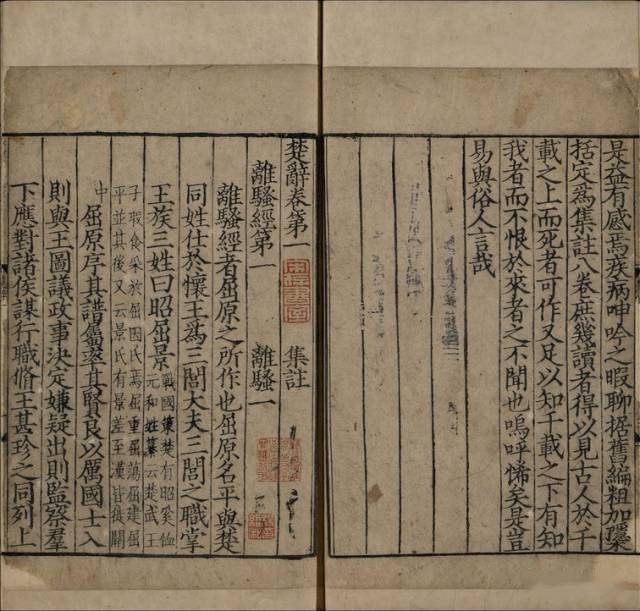 是益有感焉疾病呻吟之暇聊据舊編粗加檃
括定爲集註八卷庶幾讀者得以見古人於千
載之上而死者可作又足以知千載之下有知
我者而不恨於來者之不聞也嗚呼悕矣是豈
易與俗人言哉
楚辭卷第一 集註
離騷經第一 離騷一
離騷經者屈原之所作也屈原名平與楚
同姓仕於懷王爲三閭大夫三閭之職掌
王族三姓曰昭屈景
戰國策楚有昭奚恤
元和姓纂云楚武王
子瑕食采於屈因氏焉屈重屈蕩屈建屈
平並其後又云景氏有景差至漢皆徙關
中
屈原序其譜屬率其賢良以厲國士入
則與王圖議政事決定嫌疑出則監察羣
下應對諸侯謀行職脩王甚珍之同列上